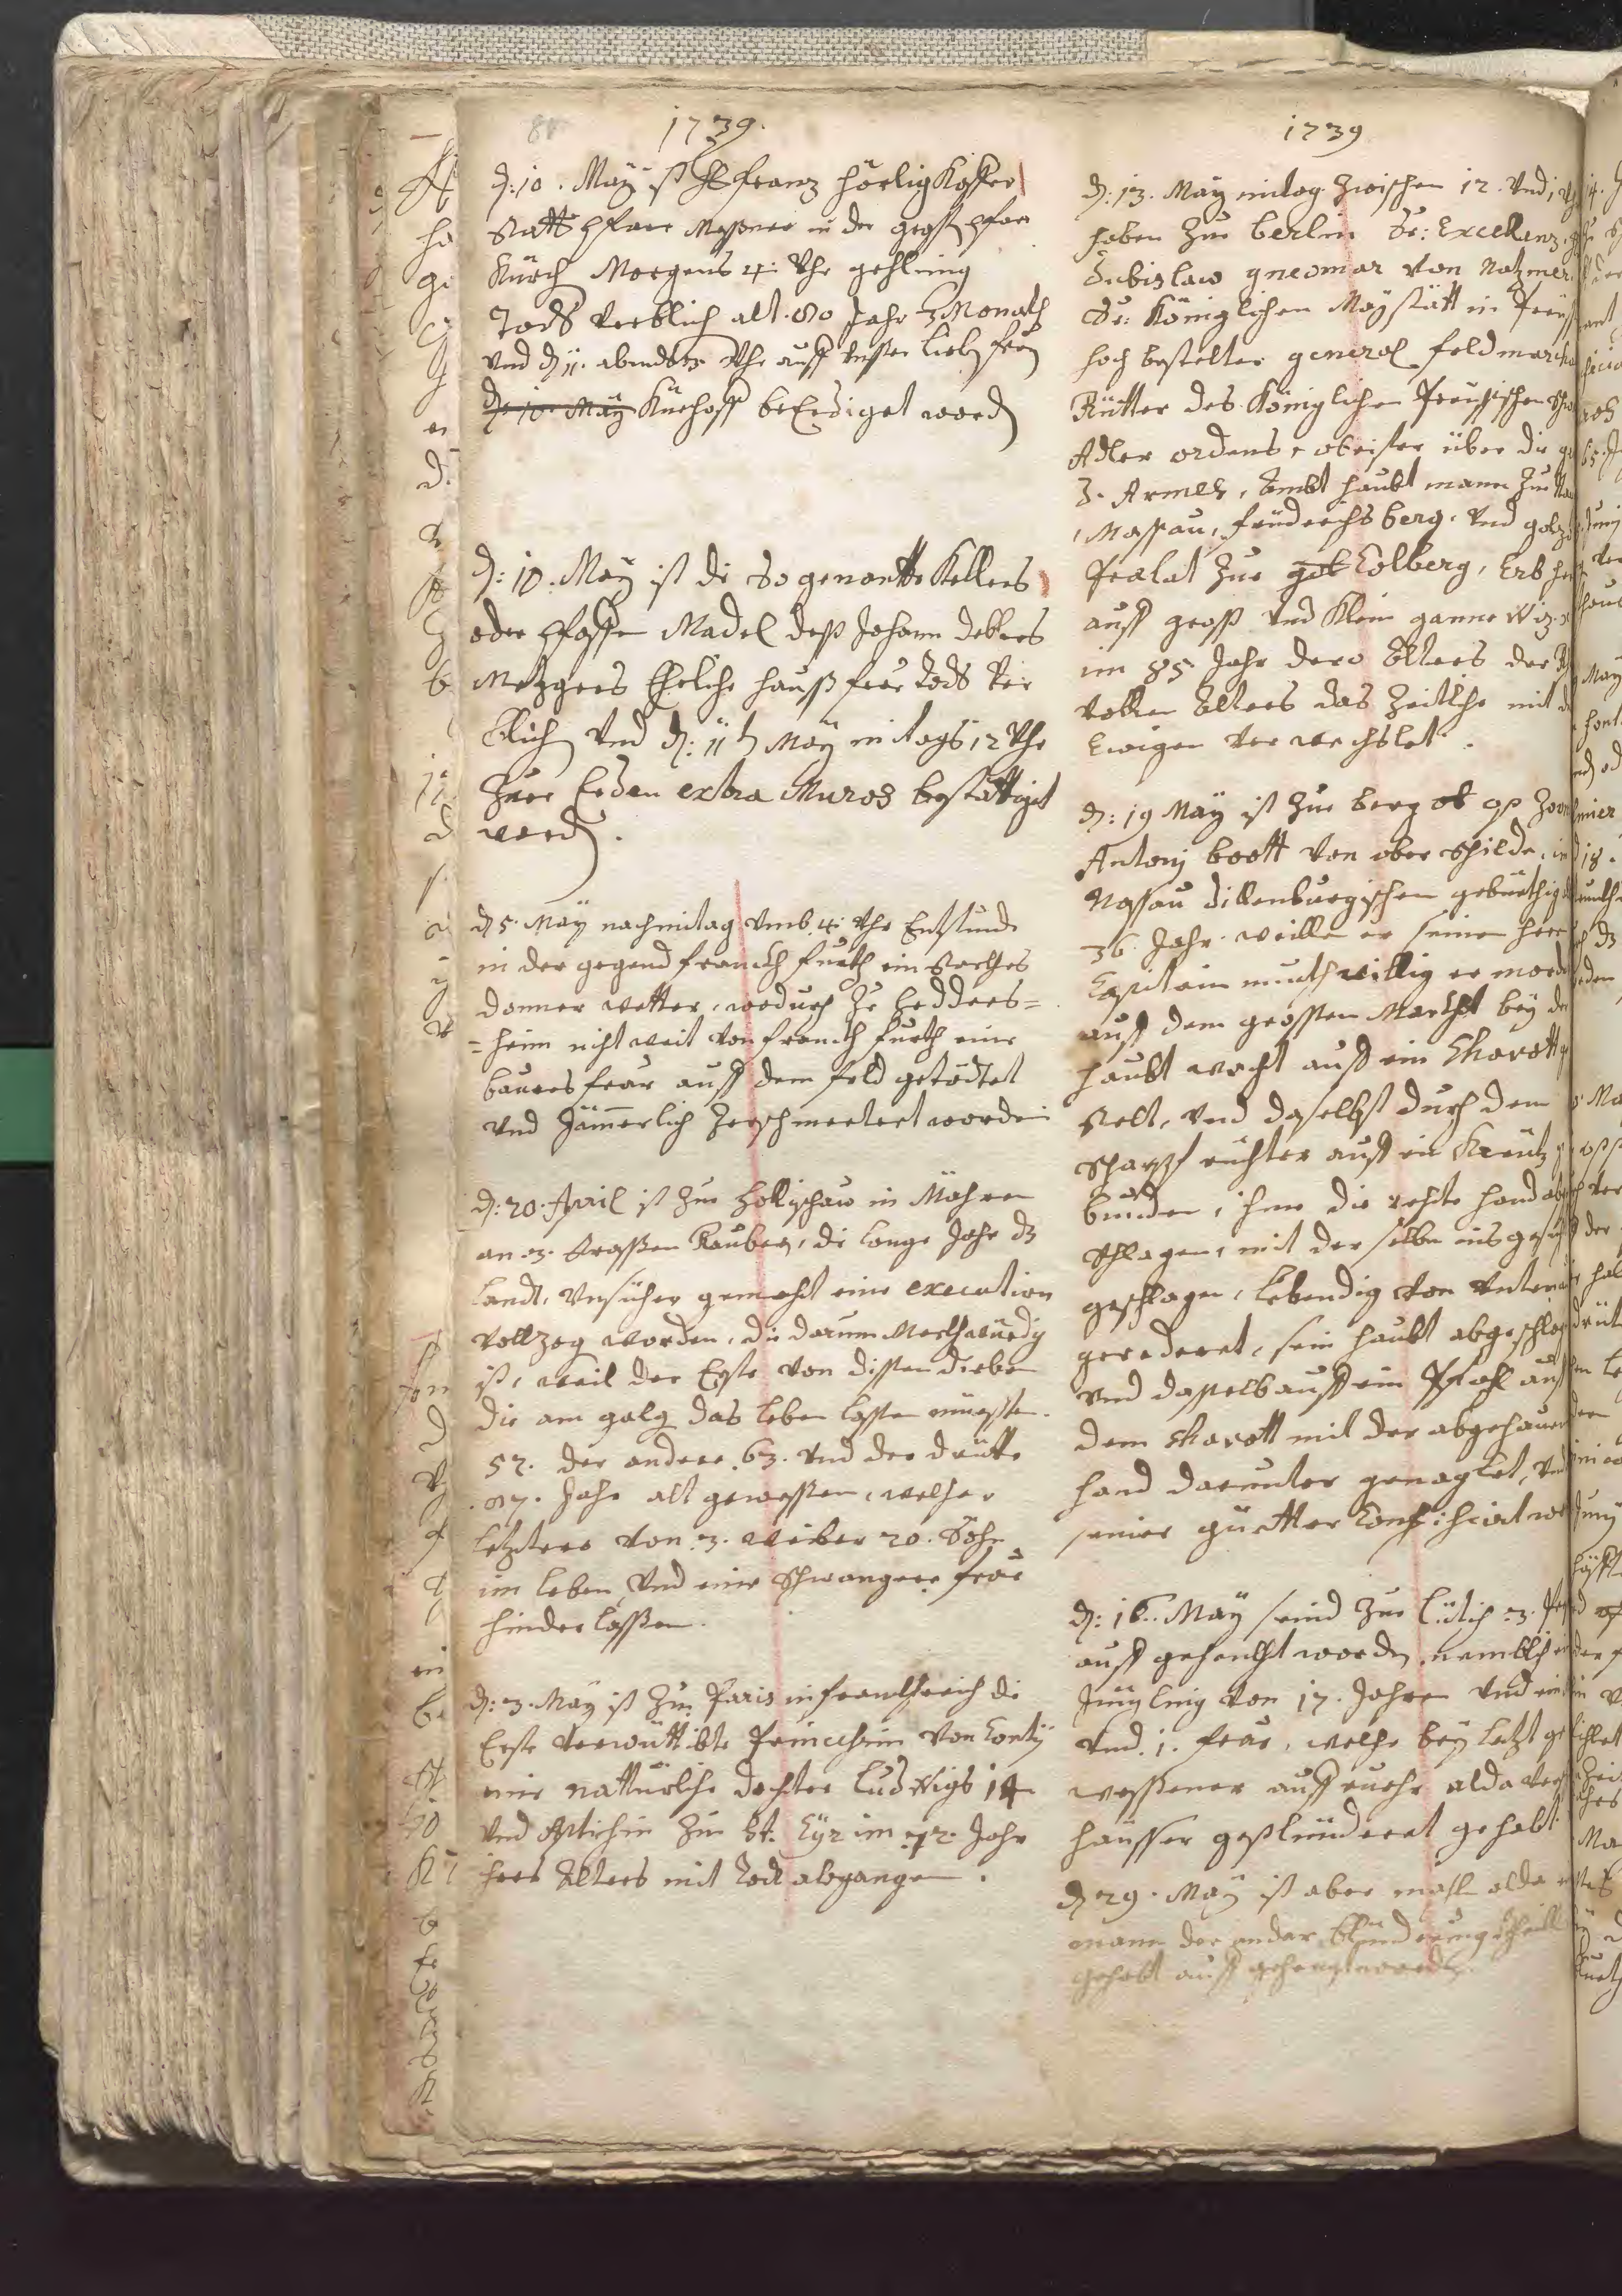 1739.
d: 10. Maÿ ist H franz hörlig Kosser
Statt Pfarr Messner in der gross Pfar
Kürch Morgens 4: Uhr gehling
Tods verblich alt 80 Jahr 3 Monath
und d 11. abends Uhr auff unsser lieb frau
d: 10. Maÿ Kirchoff beErdiget word
d: 10. Maÿ ist die so genante Kellers
oder Pfaffen Madel dess Johann
Metzgers Eheliche hauss frau Tods ver
blich und d: 11 Maÿ mitags 12 Uhr
Zuer Erden extra Muros bestättiget
word.
d 5. Maÿ nachmitag umb 4: Uhr Entstunde
in der gegend franckfurth ein starckes
donner wetter, wodurch zu hedders=
=heim nicht weit von franckfurth eine
baures frau auff dem feld getödtet
und Jämmerlich zerschmettert worden
d: 20. April ist zue hollischau in Mähren
an 3. strassen Rauber, die lange Jahr dz
landt, unsicher gemacht eine execution
vollzog worden, die darum Merckwürdig
ist, weil der Erste von dissen dieben
die am galg das leben lassen müessten.
52. der andere 63. und der dritte
87. Jahr alt gewessen, welcher
letztere von 3. weiber 20. Söhn
im leben, und eine schwangere frau
hinderlassen.
d: 3. Maÿ ist zue Paris in franckreich die
Erste verwittibte Princessin von Contÿ
eine nattürliche dochter Ludwigs 14
und zue St: Cÿr im 72. Jahr
ihres Alters mit Tod abgangen.
1739
d: 13. Maÿ mitag zwischen 12. und 1
haben zue berlin Se: Excellenz
Dubislaw gneomar von Natzmer
Sr: Königlichen Maÿstätt in Preuss
hoch bestelter general feldmarcha
Ritter des Königlichen Preussischen
Adler ordens, obrister über die
z. Armes, Ambt haubt mann zue
Massau, fridrichsberg. und
Prelat zue Colberg, Erb
auff gross und Klein gannewiz
im 85. Jahr dero Alters der
vollen Alters das Zeitliche mit d
Ewigen verwechslet.
d: 19 Maÿ ist zue berg op Zoom
Antonj boott von ober schilda, in
Nassau dillenburgischen gebürthig
36. Jahr. weillen er seinen herr
Capitain muthwillig er mordt
auff dem grossen Marckt beÿ der
haubt wacht auff ein Schavott
stelt, und daselbst durch den
scharpf richter auff ein Kreutz
bunden, ihme die rechte hand ab
schlagen, mit derselben ins gesicht
geschlagen, lebendig von unten
geraderet, sein haubt abgeschlag
und dasselb auff ein Pfahl auff
dem schavott mit der abgehauen
hand darunter genaglet, und
seine güetter Confischirt wor
d: 16. Maÿ seind zue Lütich 3. Per
auff gehenckt worden, nemblich ein
Jüngling von 17. Jahren und
und. 1. frau, welche beÿ letzt ge
wessener auffruehr alda ver
häusser geplünderet gehabt
d 29. Maÿ ist aber mahl alda
mann der an der blünderung theill
gehabt auff gehengt word.